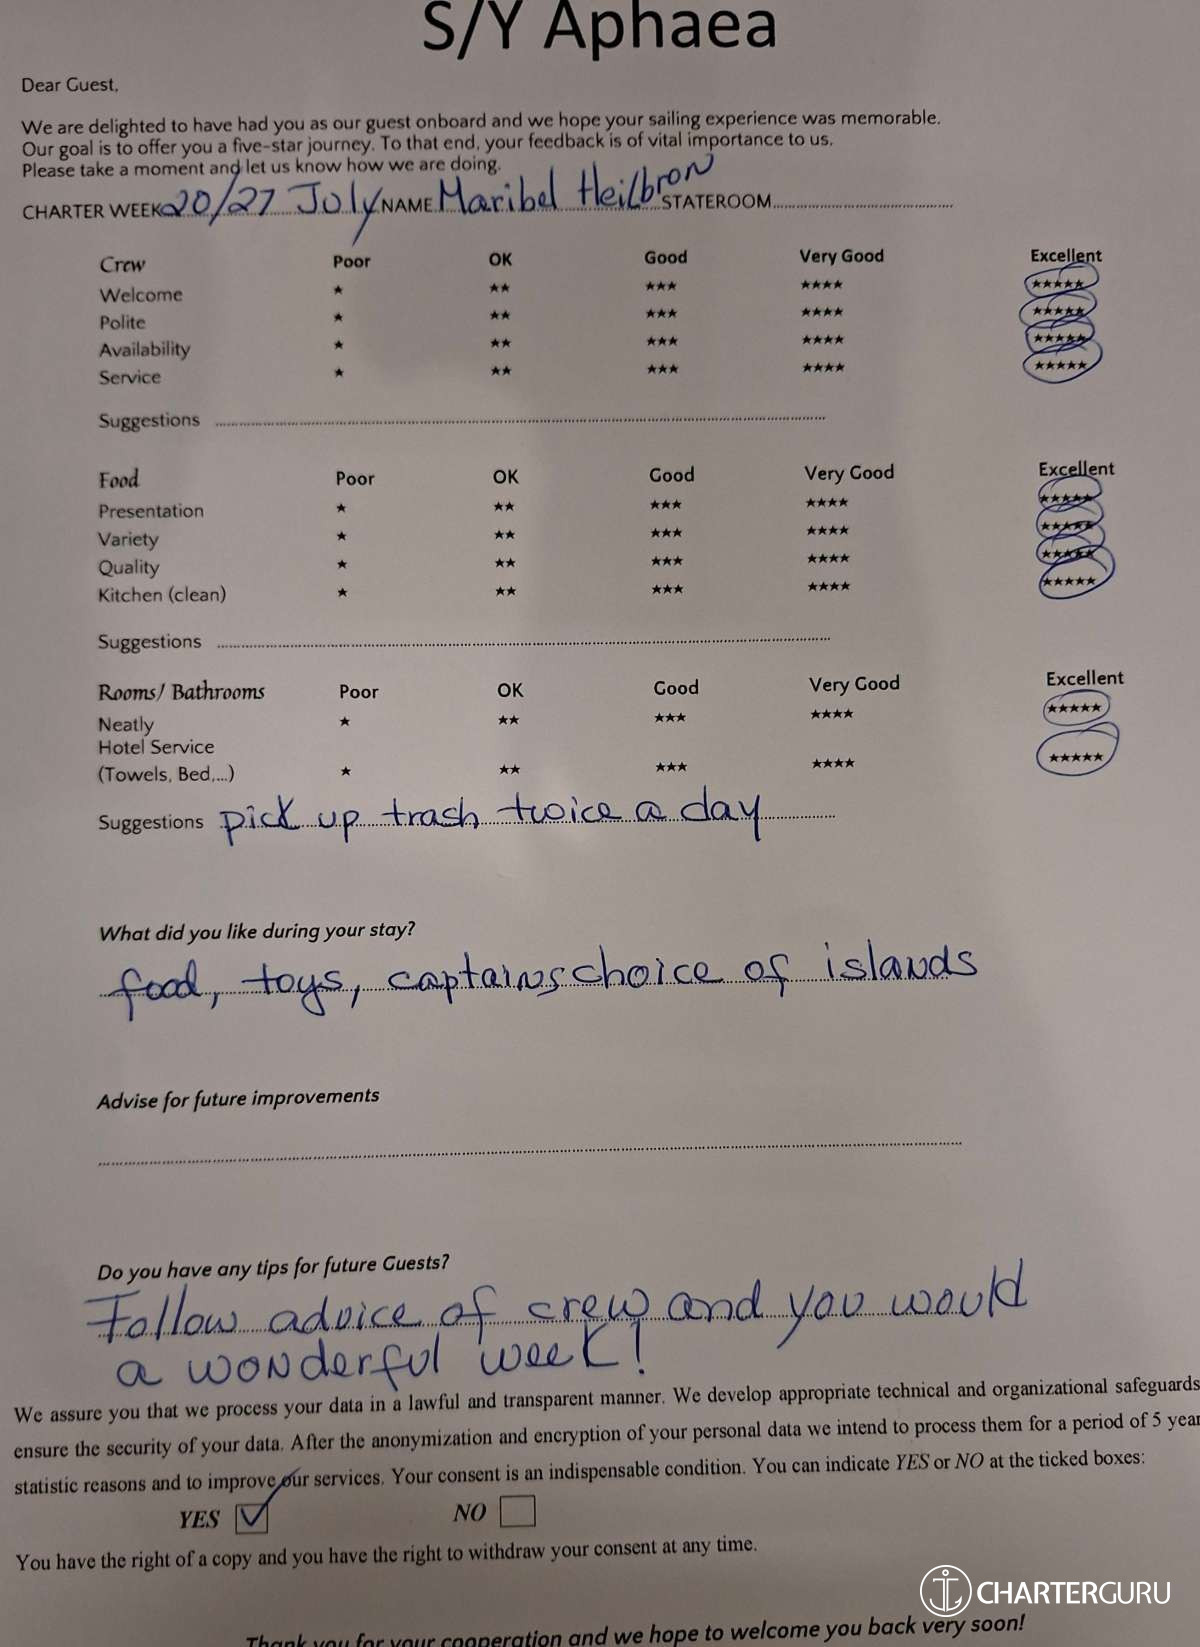 S/Y Aphaea
Dear Guest,
We are delighted to have had you as our guest onboard and we hope your sailing experience was memorable.
Our goal is to offer you a five-star journey. To that end, your feedback is of vital importance to us.
Please take a moment and let us know how we are doing.
CHARTER WEEK 20/27 July NAME Maribel Heilbron STATEROOM
Crew Poor OK Good Very Good Excellent
Welcome ★ ★★ ★★★ ★★★★ ★★★★★
Polite ★ ★★ ★★★ ★★★★ ★★★★★
Availability ★ ★★ ★★★ ★★★★ ★★★★★
Service ★ ★★ ★★★ ★★★★ ★★★★★
Suggestions
Food Poor OK Good Very Good Excellent
Presentation ★ ★★ ★★★ ★★★★ ★★★★★
Variety ★ ★★ ★★★ ★★★★ ★★★★★
Quality ★ ★★ ★★★ ★★★★ ★★★★★
Kitchen (clean) ★ ★★ ★★★ ★★★★ ★★★★★
Suggestions
Rooms/ Bathrooms Poor OK Good Very Good Excellent
Neatly ★ ★★ ★★★ ★★★★ ★★★★★
Hotel Service
(Towels, Bed,...) ★ ★★ ★★★ ★★★★ ★★★★★
Suggestions pick up trash twice a day
What did you like during your stay?
food, toys, captains choice of islands
Advise for future improvements
Do you have any tips for future Guests?
Follow advice of crew and you would
a wonderful week!
We assure you that we process your data in a lawful and transparent manner. We develop appropriate technical and organizational safeguards
ensure the security of your data. After the anonymization and encryption of your personal data we intend to process them for a period of 5 year
statistic reasons and to improve our services. Your consent is an indispensable condition. You can indicate YES or NO at the ticked boxes:
YES ☑ NO ☐
You have the right of a copy and you have the right to withdraw your consent at any time.
CHARTERGURU
Thank you for your cooperation and we hope to welcome you back very soon!